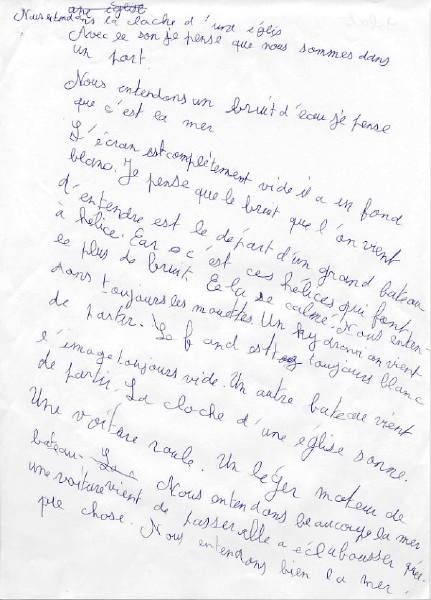 une église
Nous entendons la cloche d'une églis
Avec ce son je pense que nous sommes dans
un port.
Nous entendons un bruit d'eau je pense
que c'est la mer
L'écran est complètement vide il a un fond
blanc. Je pense que le bruit que l'on vient
d'entendre est le départ d'un grand bateau
à hélice. Car c'est ces hélices qui font
le plus de bruit. Cela se calme. Nous enten-
dons toujours les mouettes Un hydravion vient
de partir. Le fond est toujours blanc
l'image toujours vide. Un autre bateau vient
de partir. La cloche d'une église sonne.
Une voiture roule. Un léger moteur de
bateau. Nous entendons beaucoup la mer
une voiture vient de passer elle a éclabousser quel-
que chose. Nous entendons bien la mer.